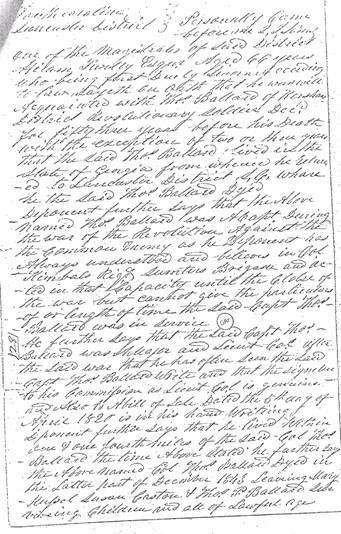 South Carolina
Lancaster District } Personally Came
before me
One of the Magistrates of said District
Tinsley Esqr. Aged 66 years
who being first Duly Sworn According
to Law, Sayeth on Oath that he was well
Acquainted with Thos. Ballard of Kershaw
District Revolutionary Soldier Decd.
for fifty three years before his Death
with the exception of two or three years
that the Said Thos. Ballard lived in the
State of Georgia from whence he return
-ed to Lancaster District S.C. where
he the Said Thos. Ballard Dyed
Deponent further Says that the Above
Named Thos. Ballard was A Capt. During
the war of the Revolution Against the
the Common Enemy as he Deponent has
Always understood and believes in Col.
Kimbals Regt. Sumters Brigade and
-ted in that Capacity until the Close of
the war but cannot give the particulars
of or length of time the Said Capt. Thos.
Ballard was in Service
He further Says that the Said Capt. Thos.
Ballard was Major and Lieut Col. after
the Said war that he has often Seen the Said
Capt. Thos. Ballard Write and that the Signature
to his Commission as Lieut Col. is genuine
and Also to A bill of Sale Dated the 5th day of
April 1825 is in his hand Writing
Deponent further Says that he lived Within
one & one fourth miles of the Said Col. Thos.
Ballard the time Above Stated he further Says
the Above Named Col. Thos. Ballard Dyed in
the Latter part of December 1843 Leaving Mary
Russel Susan Caston & Thos. P. Ballard Sur
viving Children and all of Lawful age